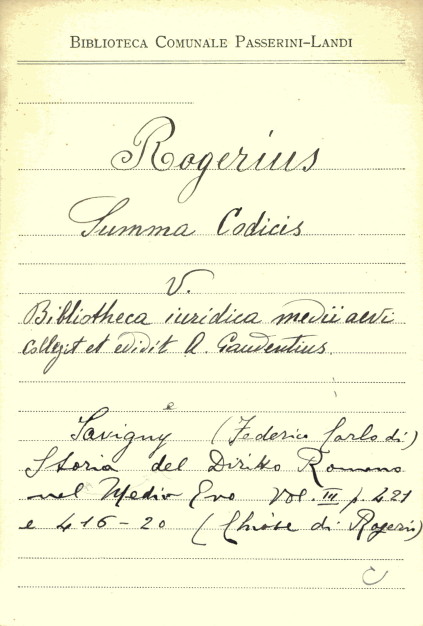 BIBLIOTECA COMUNALE PASSERINI-LANDI
Rogerius
Summa Codicis
V.
Bibliotheca iuridica medii aevi
collegit et edidit A. Gaudentius.
e
Savigny (Federico Carlo di)
Storia del Diritto Romano
nel Medio Evo Vol. III p. 421
e 416-20 (Chiose di Rogerio)
C